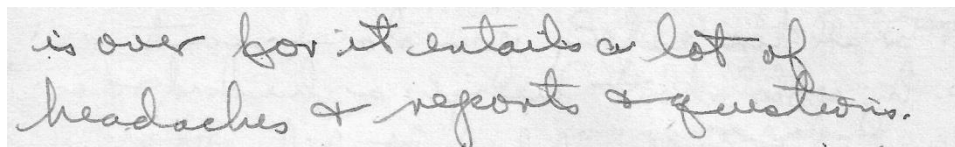 is over for it entails a lot of
headaches & reports & questions.